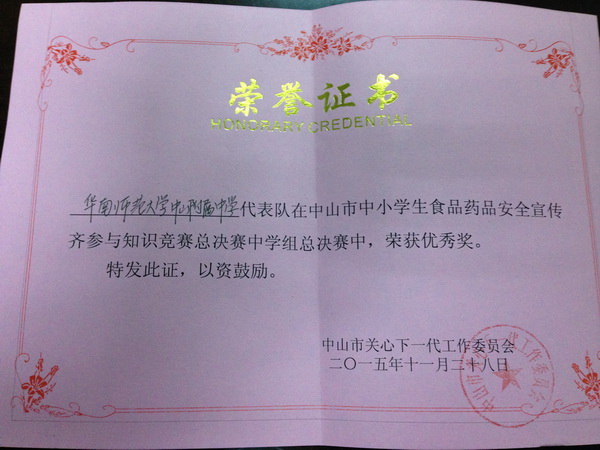 荣誉证书
HONORARY CREDENTIAL
华南师范大学中山附属中学代表队在中山市中小学生食品药品安全宣传
齐参与知识竞赛总决赛中学组总决赛中，荣获优秀奖。
特发此证，以资鼓励。
中山市关心下一代工作委员会
二〇一五年十一月二十八日